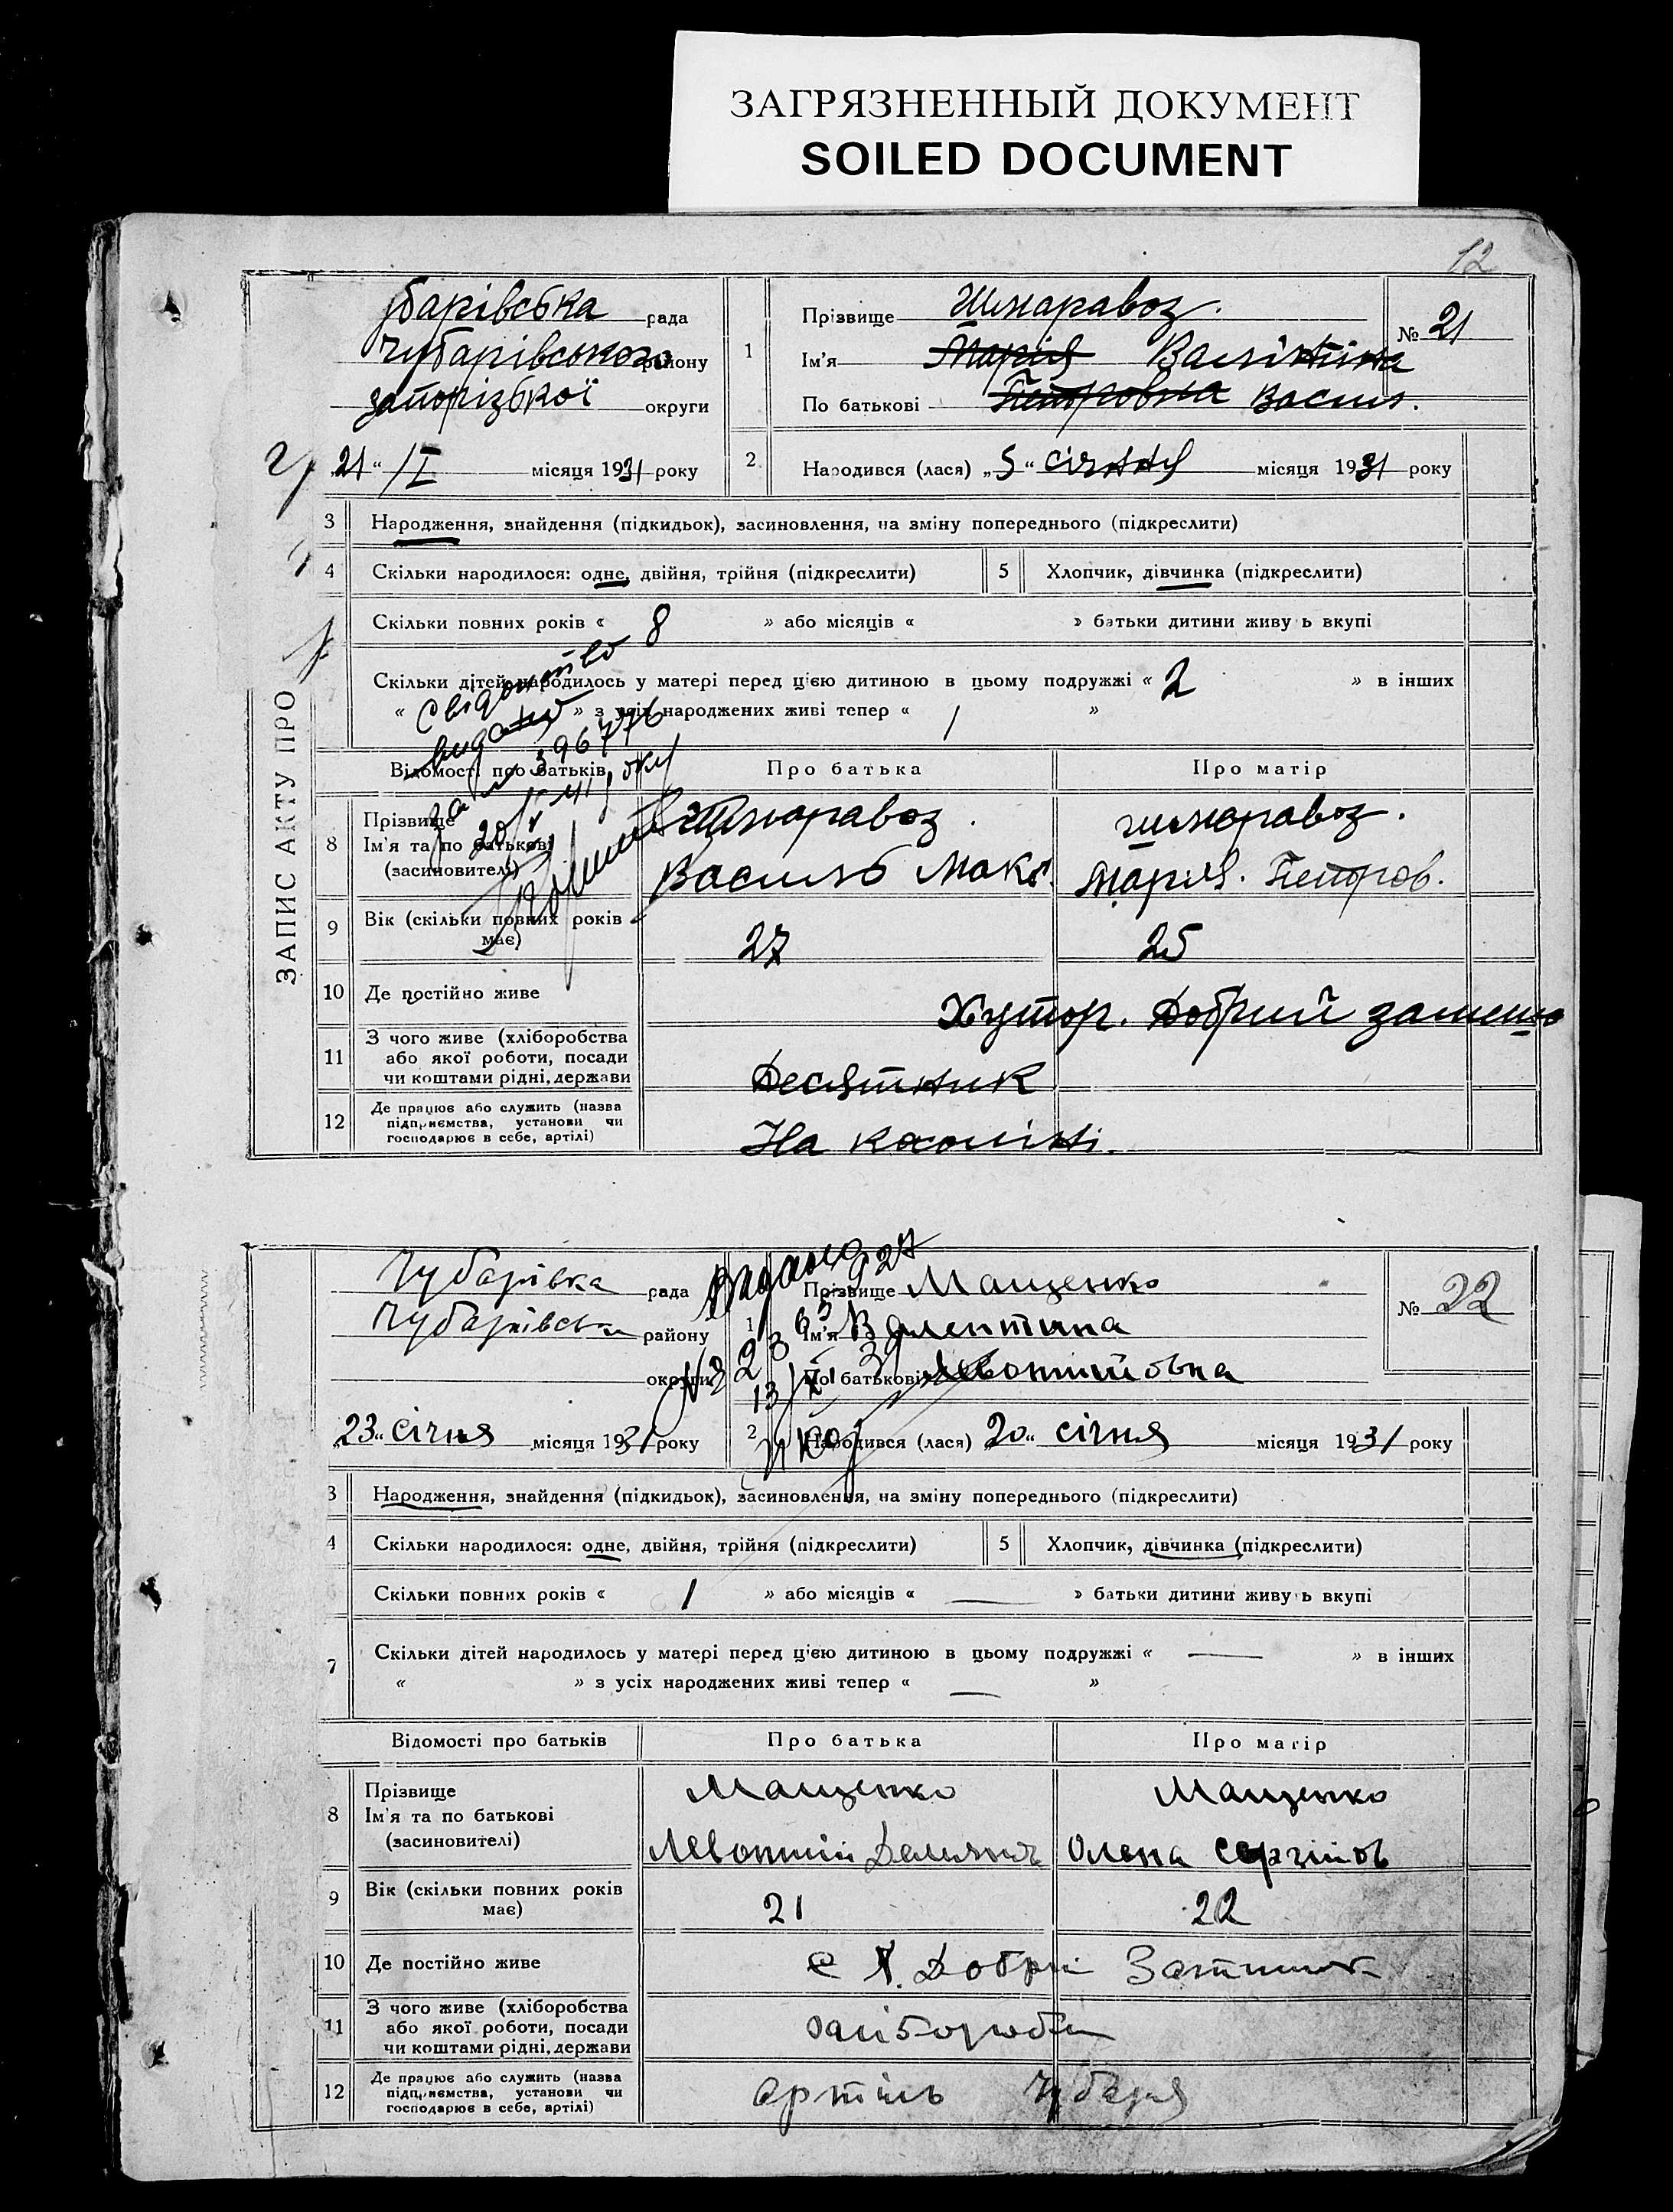 ЗАГРЯЗНЕННЫЙ ДОКУМЕНТ
SOILED DOCUMENT
12
ЗАПИС АКТУ ПРО
убарівська рада
Чубарівського району
запорізької округи
21 " /I місяця 1931 року
1
Прізвище Шмаравоз.
Ім'я Марія Валінтіна
По батькові Петровна Васил.
№ 21
2 Народився (лася) „5" січня місяця 1931 року
3 Народження, знайдення (підкидьок), засиновлення, на зміну попереднього (підкреслити)
4 Скільки народилося: одне, двійня, трійня (підкреслити) 5 Хлопчик, дівчинка (підкреслити)
Скільки повних років « 8 » або місяців « » батьки дитини живу ь вкупі
Скільки дітей народилось у матері перед цією дитиною в цьому подружжі « 2 » в інших
« » з усіх народжених живі тепер « 1 »
Свідоцтво
видано
за № 396776
20/V 41 року
Відомості про батьків Про батька Про матір
8 Прізвище
Ім'я та по батькові
(засиновителі)
Шмаравоз Шмаравоз.
Василь Мак. Марія. Петров.
9 Вік (скільки повних років має) 27 25
10 Де постійно живе Хутор. Добрий
11 З чого живе (хліборобства
або якої роботи, посади
чи коштами рідні, держави
Десятник
12 Де працює або служить (назва
підприємства, установи чи
господарює в себе, артілі)
На каоліні.
Чубарівка рада
Чубарівськ району
округи
23 " січня місяця 1931 року
1
Прізвище Мащенко
Ім'я Валентина
По батькові Левонтийовна
№ 22
2 Народився (лася) 20 " січня місяця 1931 року
3 Народження, знайдення (підкидьок), засиновлення, на зміну попереднього (підкреслити)
4 Скільки народилося: одне, двійня, трійня (підкреслити) 5 Хлопчик, дівчинка (підкреслити)
Скільки повних років « 1 » або місяців « — » батьки дитини живу ь вкупі
7 Скільки дітей народилось у матері перед цією дитиною в цьому подружжі « — » в інших
« » з усіх народжених живі тепер « — »
Відомості про батьків Про батька Про матір
8 Прізвище
Ім'я та по батькові
(засиновителі)
Мащенко Мащенко
Левонтий Демянич Олена Сергіїов
9 Вік (скільки повних років має) 21 22
10 Де постійно живе
С Х. Добри Затишок
11 З чого живе (хліборобства
або якої роботи, посади
чи коштами рідні, держави
12 Де працює або служить (назва
підприємства, установи чи
господарює в себе, артілі)
Артіль Чубаря